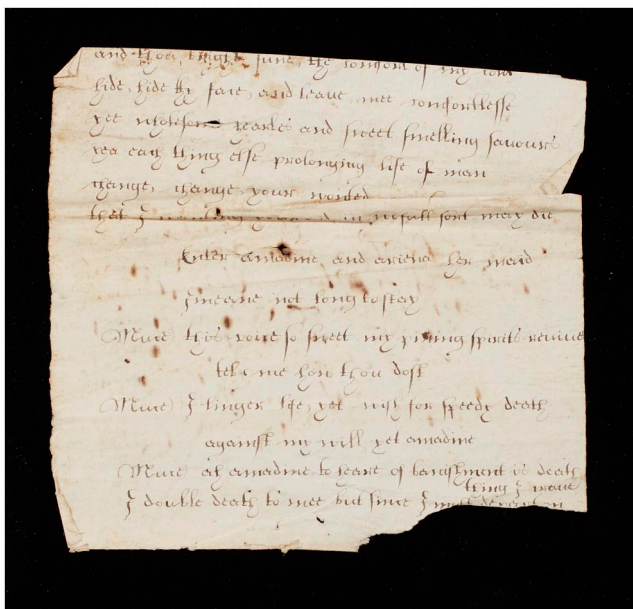 and thou bright sune the comfort of my
hide, hide thy face, and leave mee comfortlesse
yee wholesom hearbes and sweet smelling savours
yea each thing else prolonging life of man
change, change your wonted
that I wanting in wofull sort may die
Enter amadine and ariena her maid
I meane not long to stay
Muce this voice so sweet my pining spirits revives
tell me how thou dost
Muce I linger life, yet wish for speedy death
against my will yet amadine
Muce ah amadine to heare of banishment is death
I double death to mee but since I must depart on
thing I crave